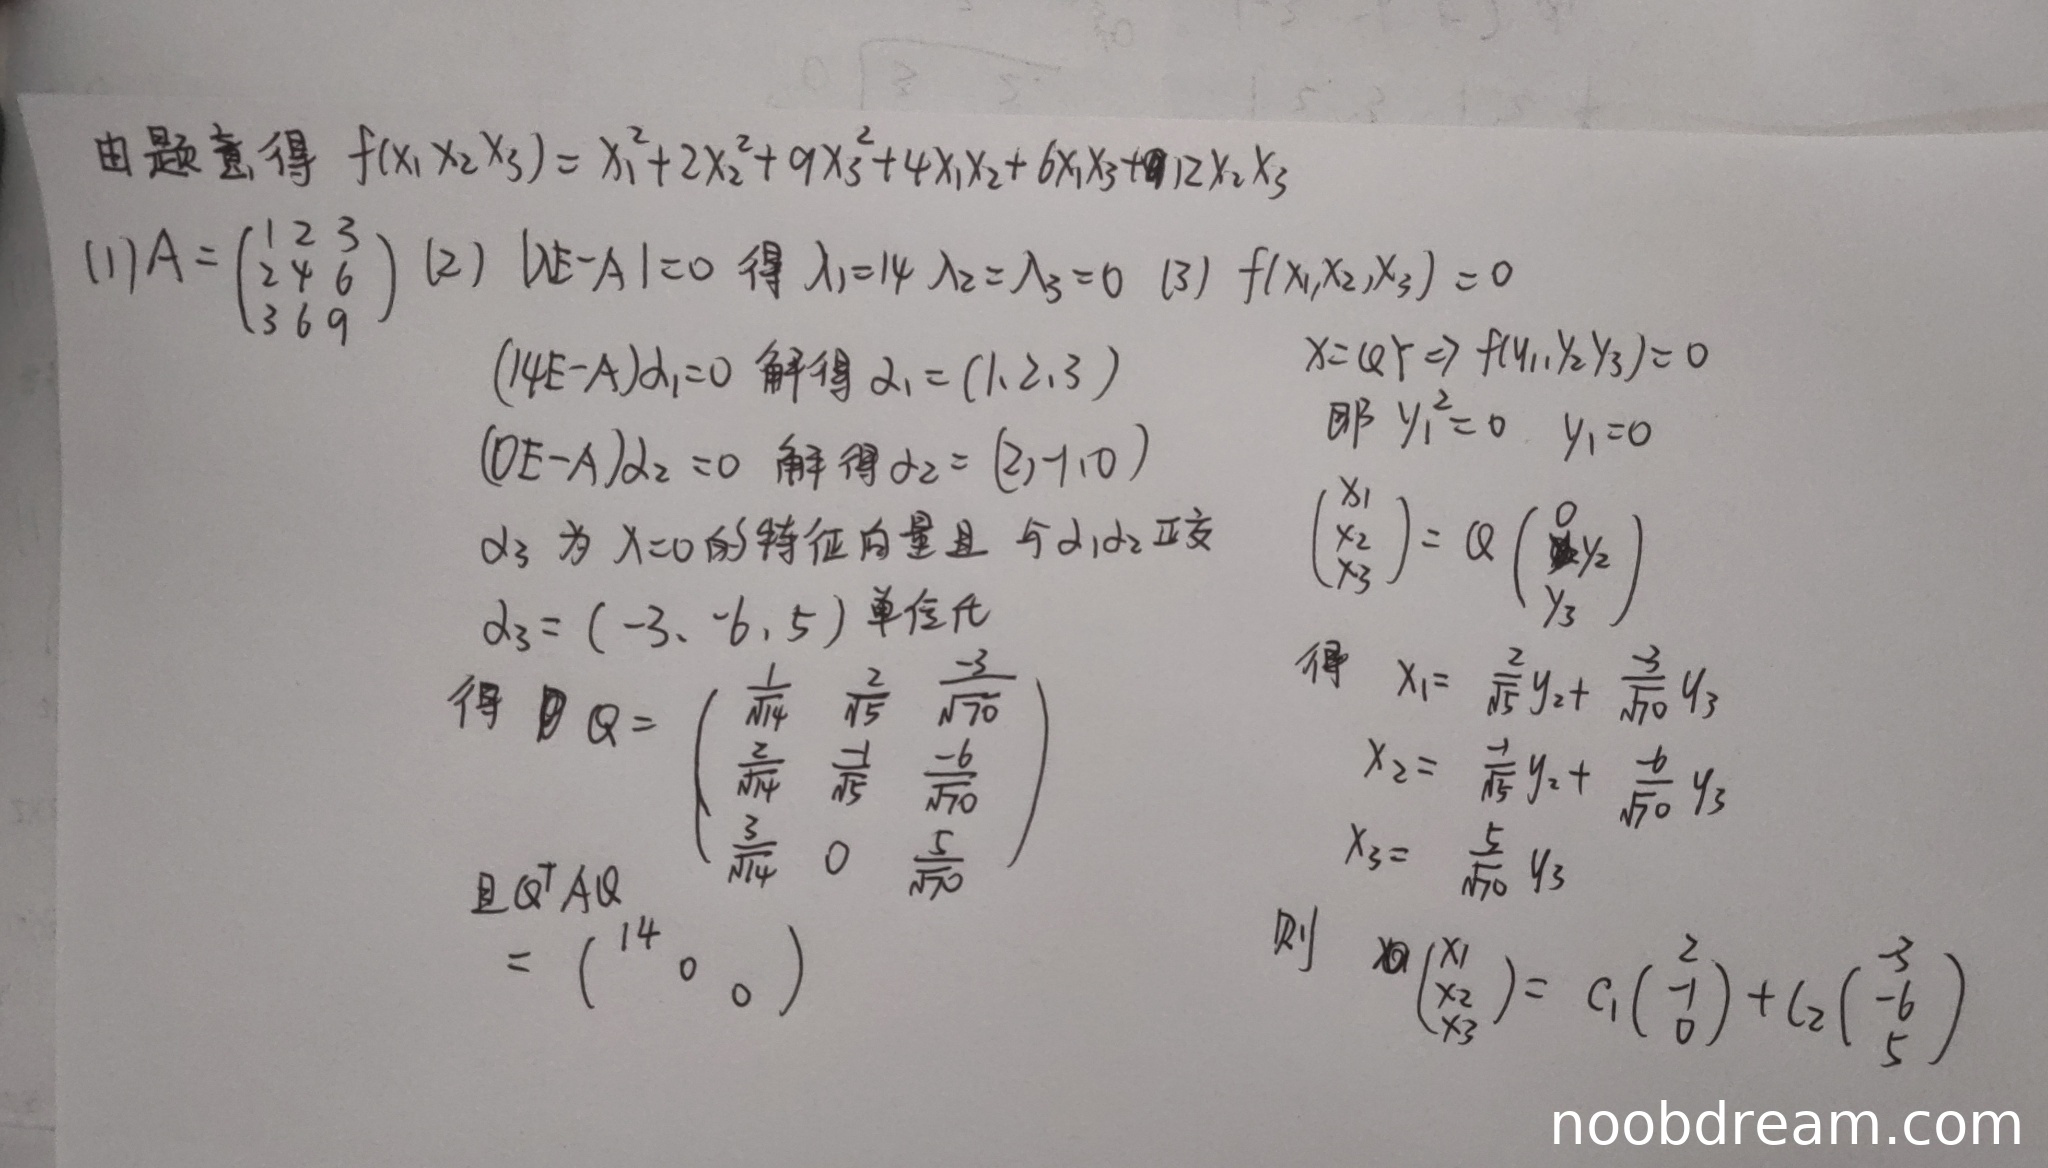 由题意得 f(x₁ x₂ x₃) = x₁² + 2x₂² + 9x₃² + 4x₁x₂ + 6x₁x₃ + 12x₂x₃
(1) A = (1 2 3
2 4 6
3 6 9)
(2) |λE-A|=0 得 λ₁=14 λ₂=λ₃=0
(14E-A)α₁=0 解得 α₁=(1、2、3)
(0E-A)α₂=0 解得 α₂=(2,-1,0)
α₃ 为 λ=0 的特征向量且 与α₁α₂正交
α₃=(-3、-6,5) 单位化
得 Q = (1/√14 2/√5 -3/√70
2/√14 -1/√5 -6/√70
3/√14 0 5/√70)
且 QᵀAQ
= (14
0
0)
(3) f(x₁,x₂,x₃) = 0
X=QY ⇒ f(y₁,y₂y₃)=0
即 y₁²=0 y₁=0
(x₁
x₂
x₃) = Q (0
y₂
y₃)
得 x₁= 2/√5 y₂ + -3/√70 y₃
x₂= -1/√5 y₂ + -6/√70 y₃
x₃= 5/√70 y₃
则 (x₁
x₂
x₃) = C₁(2
-1
0) + C₂(-3
-6
5)
noobdream.com